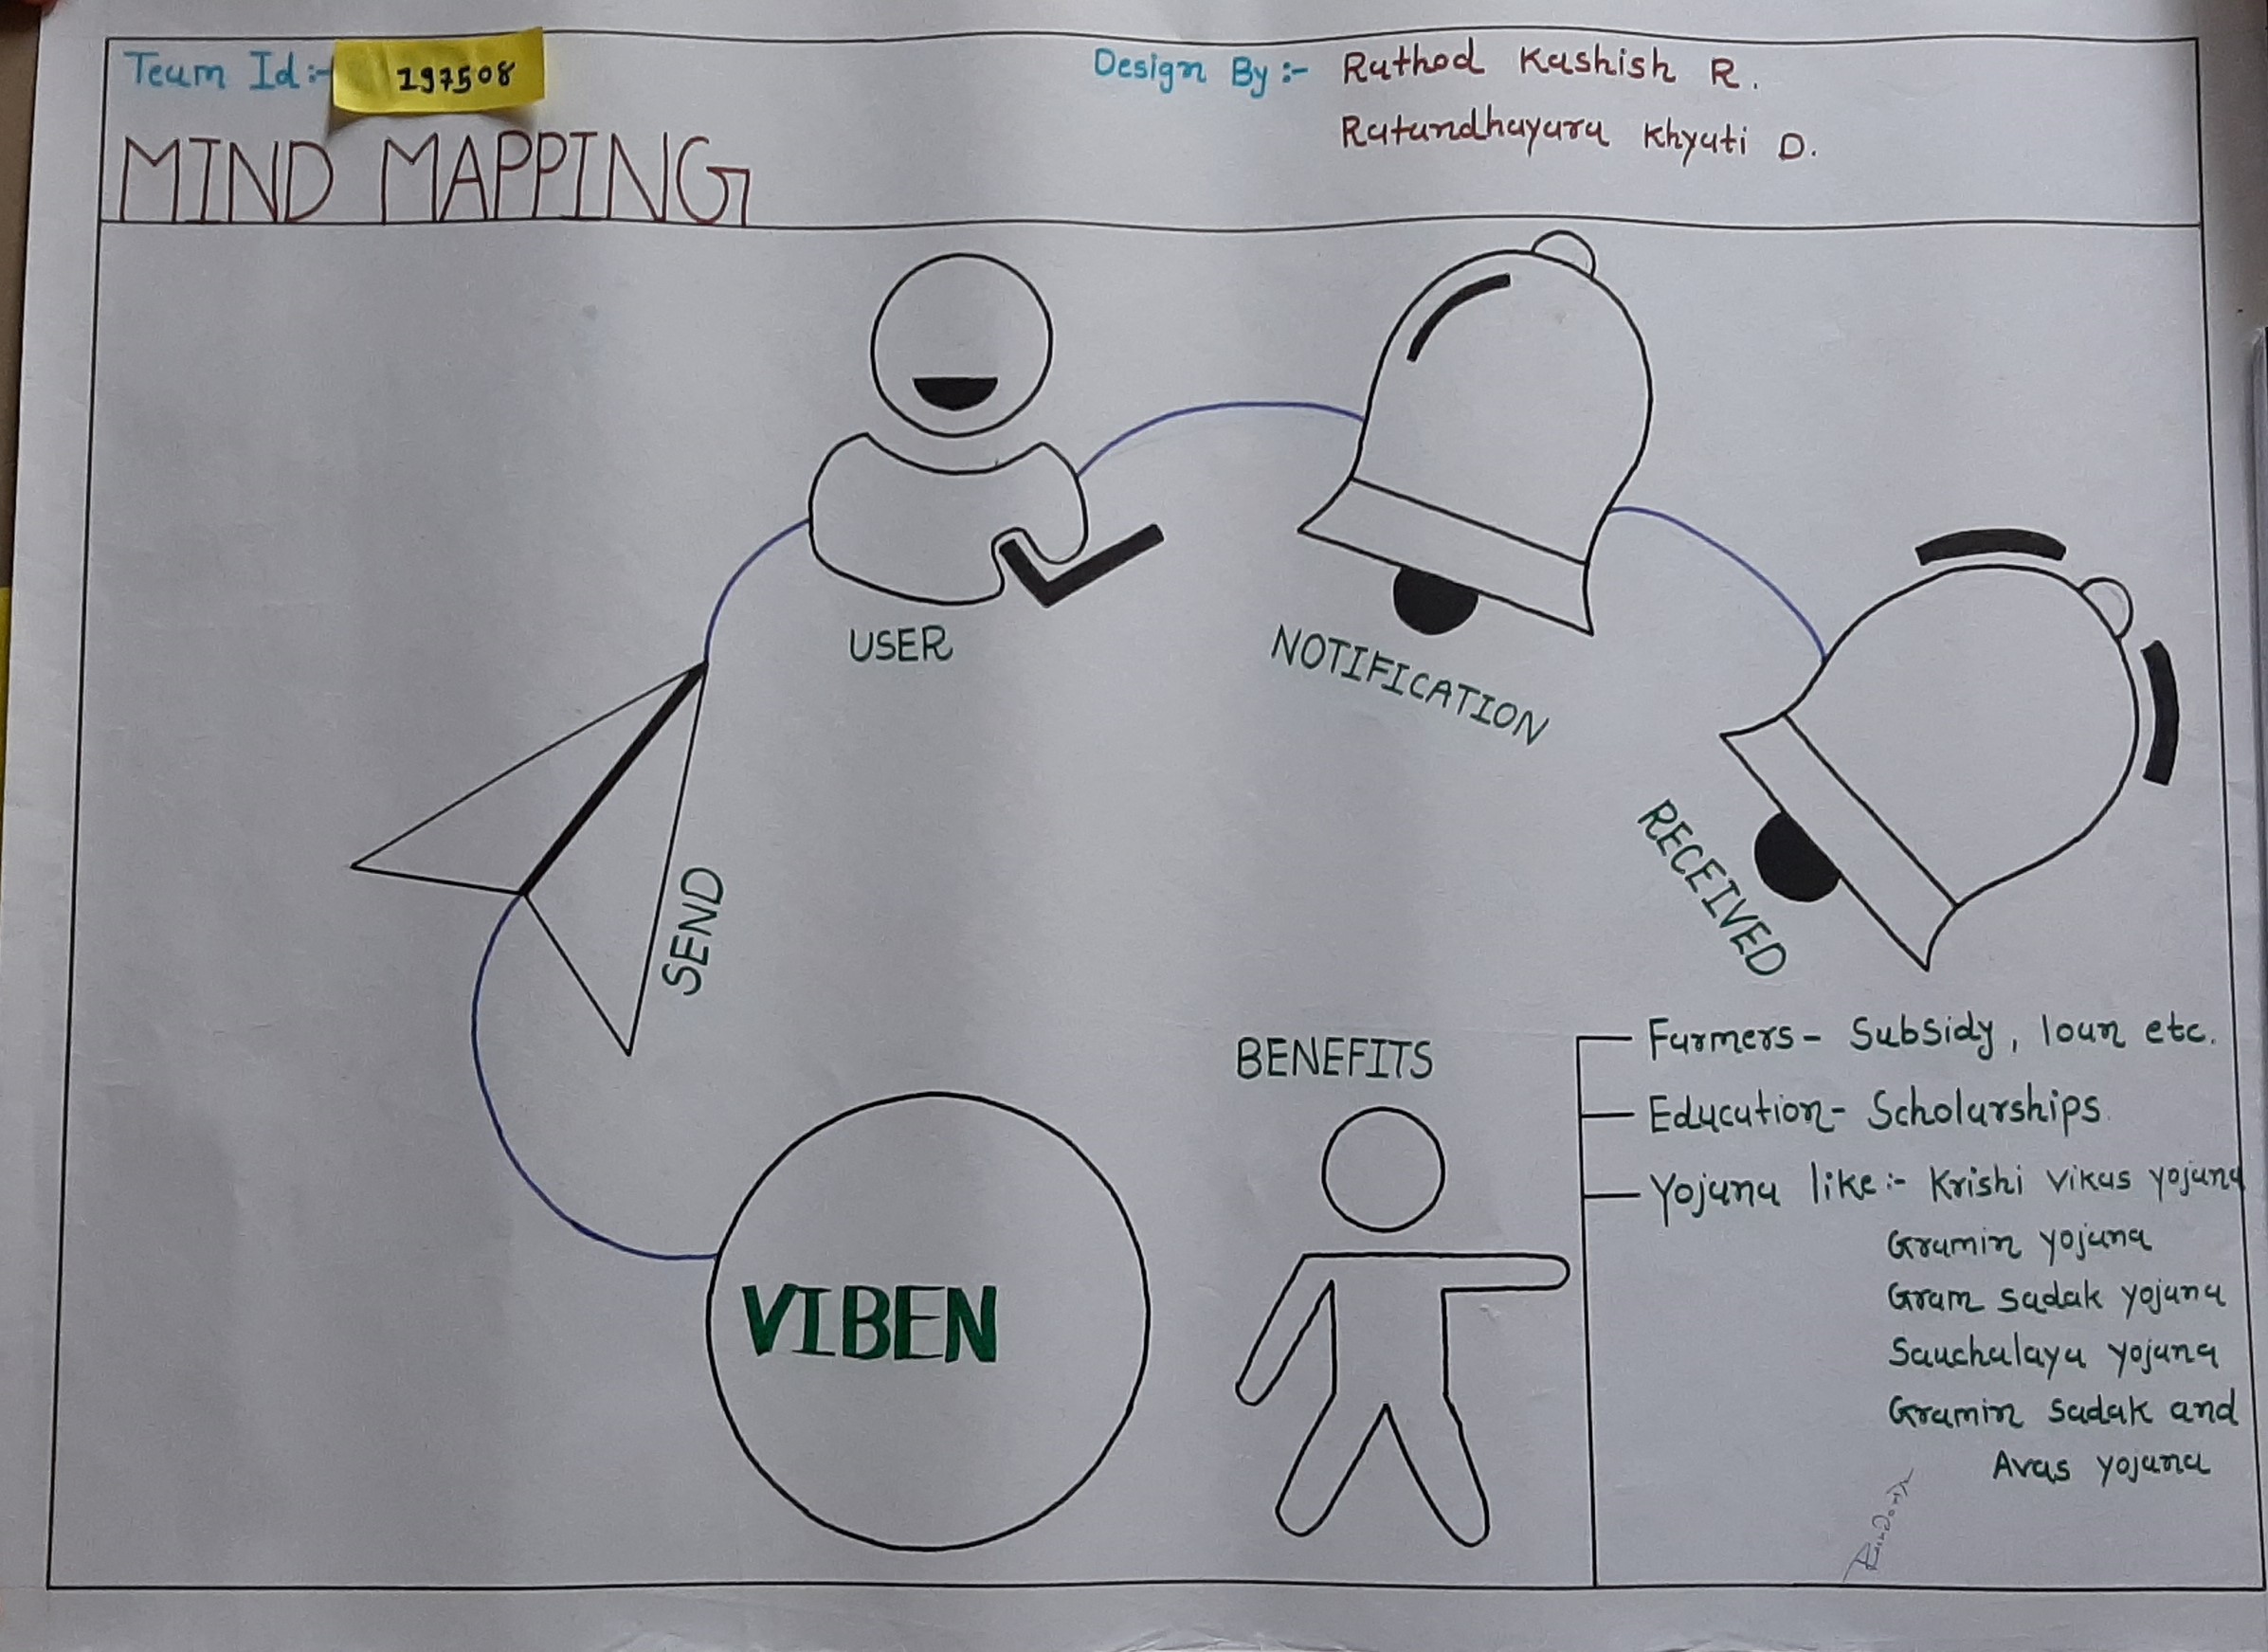 Team Id:- 197508
Design By :- Rathod Kashish R.
Ratandhayara Khyati D.
MIND MAPPING
USER
NOTIFICATION
RECEIVED
SEND
VIBEN
BENEFITS
Farmers - Subsidy, loan etc.
Education - Scholarships.
Yojana like :- Krishi Vikas yojana
Gramin yojana
Gram sadak yojana
Sauchalaya yojana
Gramin sadak and
Avas yojana